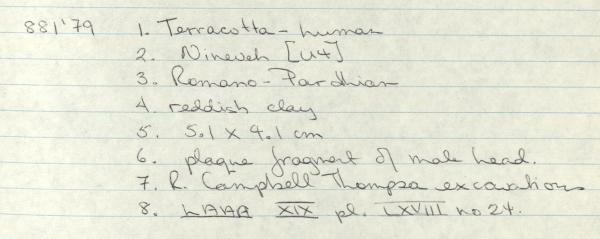 881'79 1. Terracotta - human
2. Nineveh [U4]
3. Romano-Parthian
4. reddish clay
5. 5.1 x 4.1 cm
6. plaque fragment of male head.
7. R. Campbell Thompson excavations
8. LAAA XIX pl. LXVIII no 24.